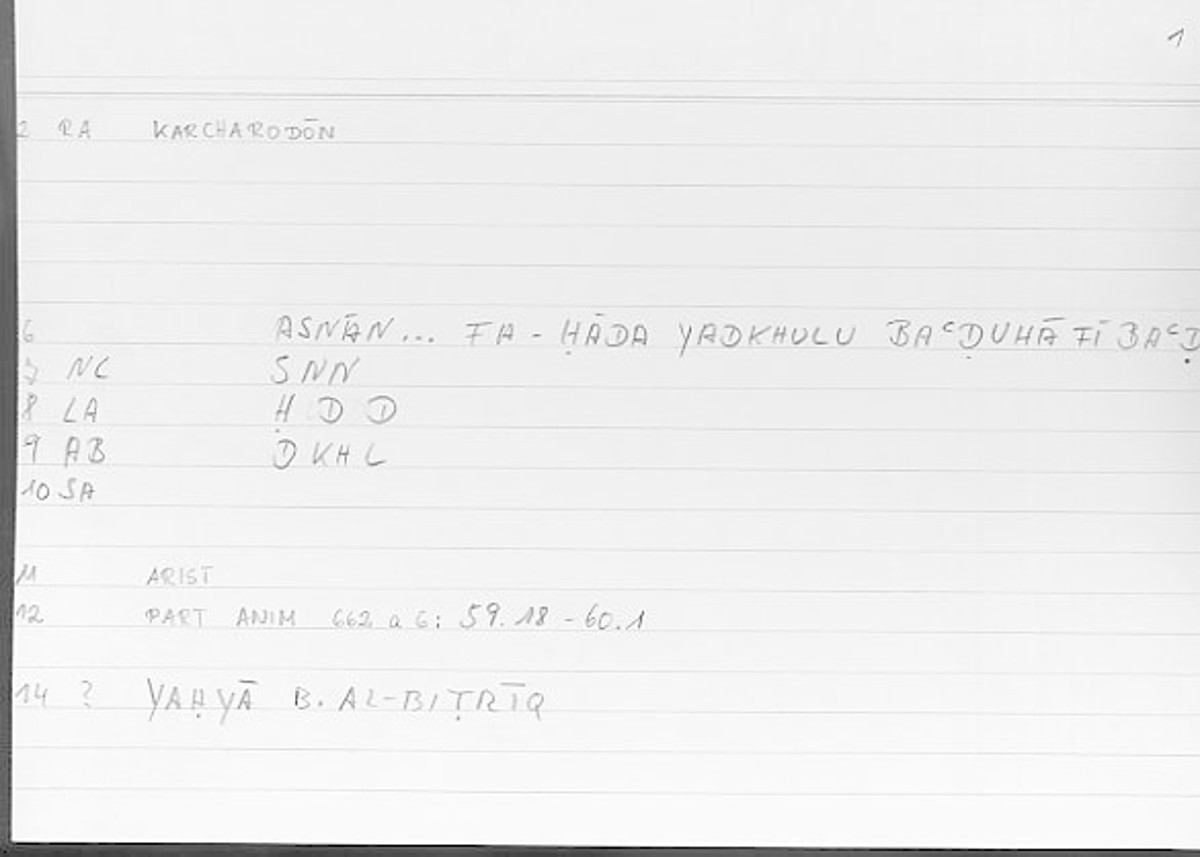 1
2 RA KARCHARODŌN
6 ASNĀN... FA-ḤĀDA YADKHULU BAᶜḌUHĀ FĪ BAᶜḌ
7 NC SNN
8 LA ḤDD
9 AB DKHL
10 SA
11 ARIST
12 PART ANIM 662 a 6: 59.18-60.1
14 ? YAḤYĀ B. AL-BIṬRĪQ